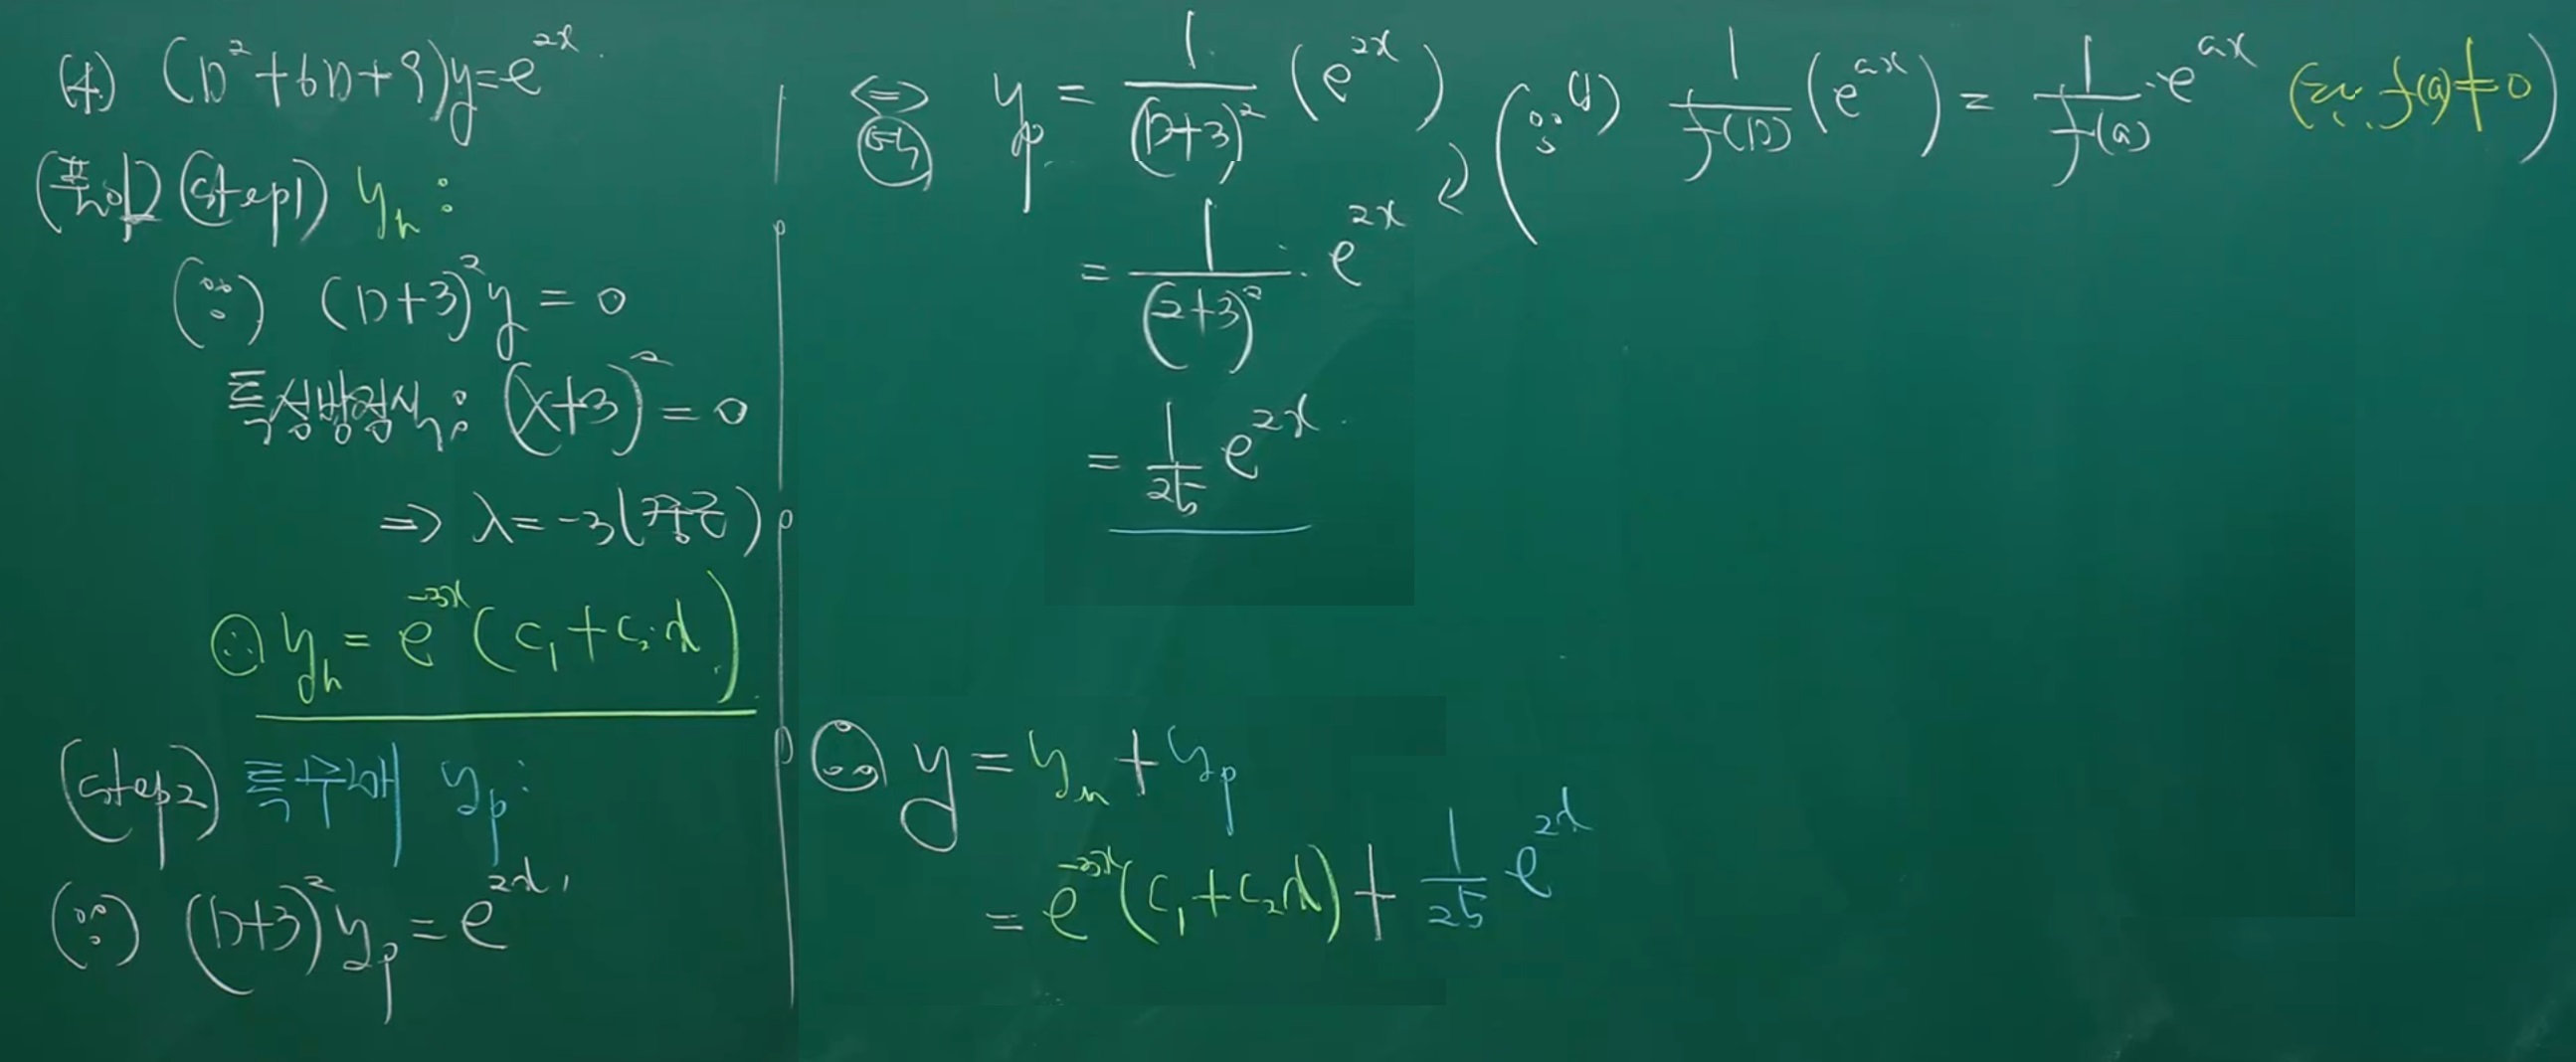 (4) (D²+6D+9)y=e^{2x}.
(풀이) (step1) y_h :
(∵) (D+3)²y = 0
특성방정식: (λ+3)² = 0
⇒ λ=-3(중근)
∴ y_h = e^{-3x}(c₁+c₂·x)
(step2) 특수해 y_p:
(∵) (D+3)²y_p = e^{2x},
⇔ y_p = 1/(D+3)² (e^{2x}) (∵ 1/f(D) (e^{ax}) = 1/f(a) · e^{ax} (f(a)≠0))
= 1/(2+3)² · e^{2x}
= 1/25 e^{2x}
∴ y = y_h + y_p
= e^{-3x}(c₁+c₂x) + 1/25 e^{2x}